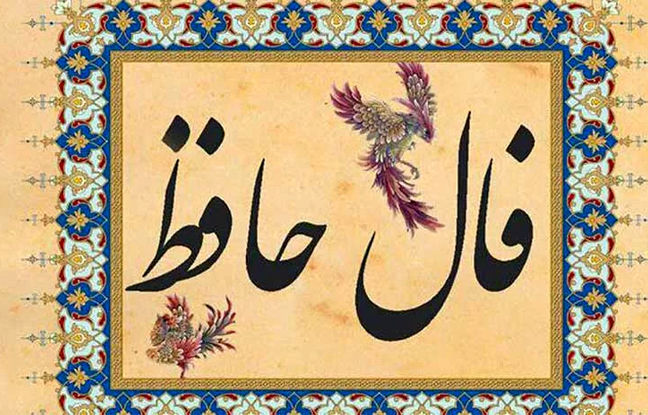 فال حافظ